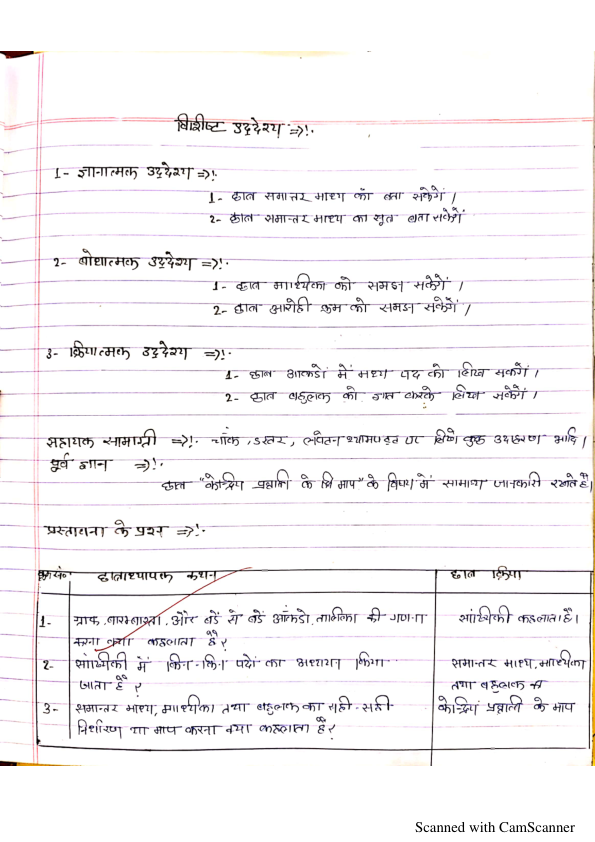 विशिष्ट उद्देश्य ⇒!.
1- ज्ञानात्मक उद्देश्य ⇒!.
1- छात्र समान्तर माध्य को बता सकेगें ।
2- छात्र समान्तर माध्य का सूत्र बता सकेगें
2- बोधात्मक उद्देश्य ⇒!.
1- छात्र माध्यिका को समझ सकेगें ।
2- छात्र आरोही क्रम को समझ सकेगें ।
3- क्रियात्मक उद्देश्य ⇒!.
1- छात्र आकडों में मध्य पद को लिख सकेगें ।
2- छात्र बहुलक को ज्ञात करके लिख सकेगें ।
सहायक सामाग्री ⇒!. चॉक, डस्टर, लपेटन श्यामपट्ट पर लिखे कुछ उदाहरण आदि ।
पूर्व ज्ञान ⇒!.
छात्र "केन्द्रिय प्रवृति के माप" के विषय में सामान्य जानकारी रखते है।
प्रस्तावना के प्रश्न ⇒!.
क्र०सं० छात्राध्यापक कथन छात्र क्रिया
1- ग्राफ, बारम्बारता, और बडें से बडें आंकडो, तालिका की गणना सांख्यिकी कहलाता है।
करना क्या कहलाता है ?
2- सांख्यिकी में किन-किन पदों का अध्ययन किया समान्तर माध्य, माध्यिका
जाता है ? तथा बहुलक
3- समान्तर माध्य, माध्यिका तथा बहुलक का सही-सही केन्द्रिय प्रवृति के माप
निर्धारण या माप करना क्या कहलाता है ?
Scanned with CamScanner